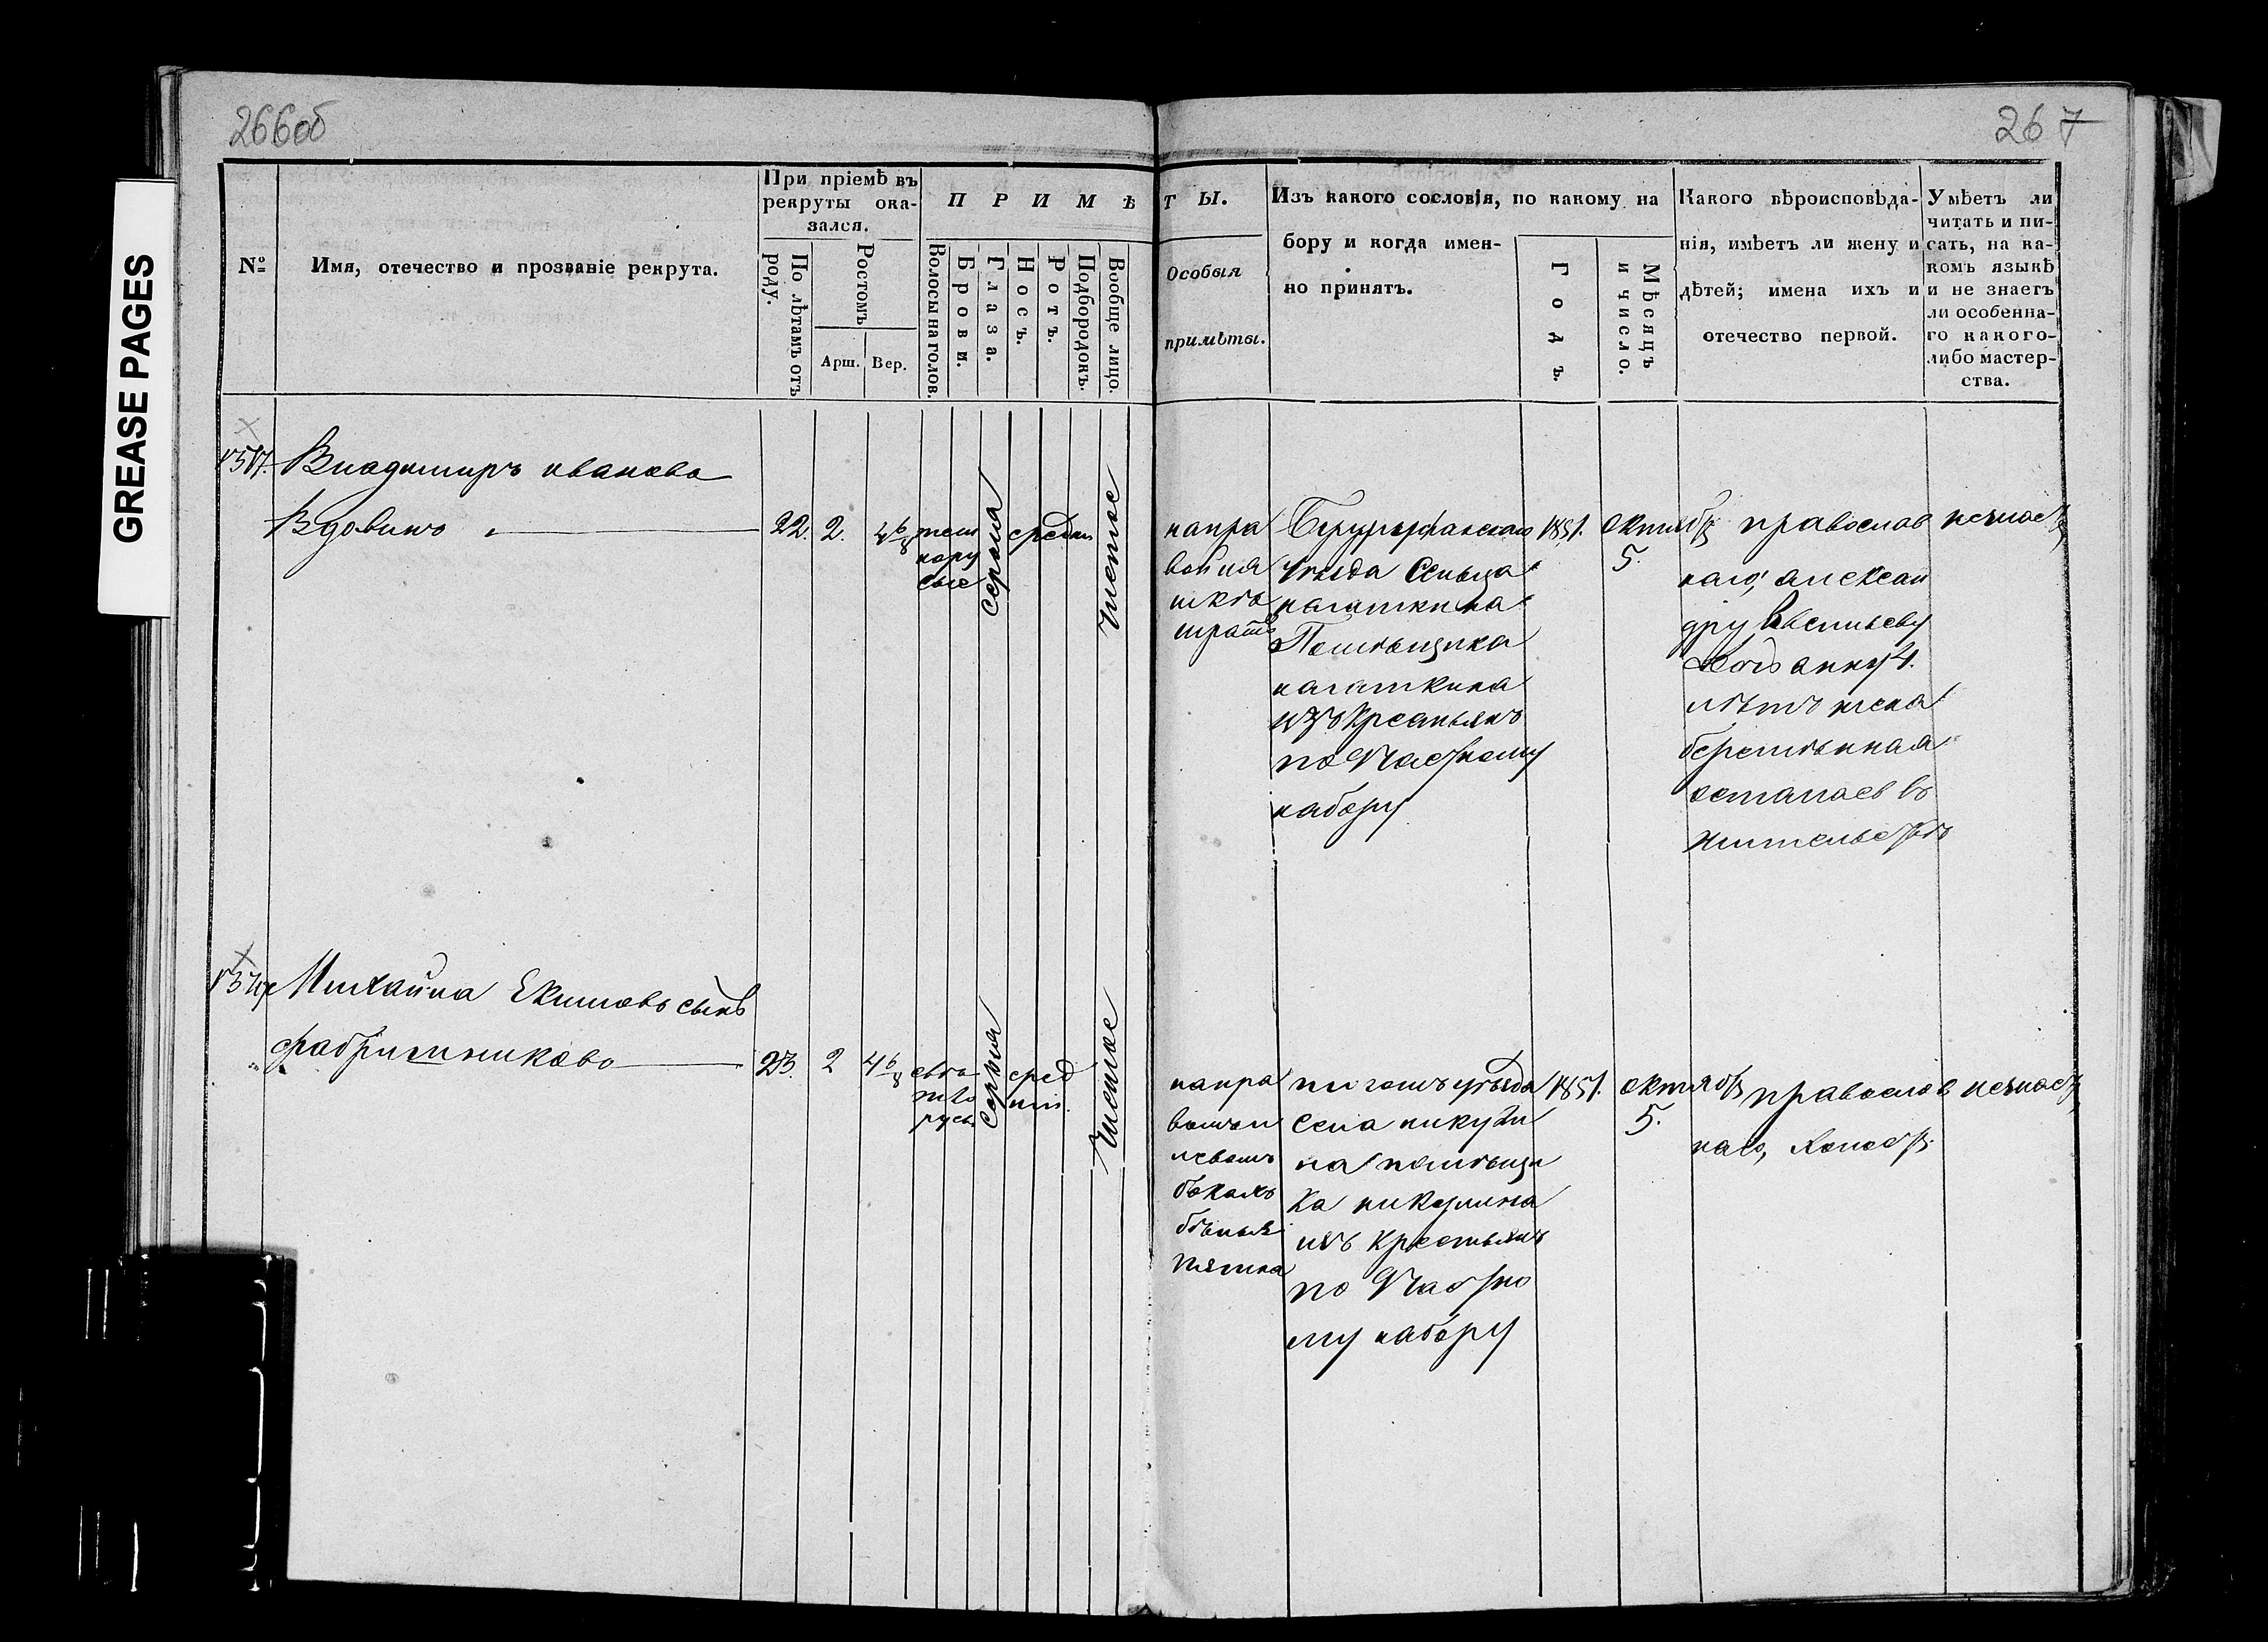 266об
267
GREASE PAGES
№
Имя, отечество и прозваніе рекрута.
При пріемѣ въ
рекруты ока-
зался.
По лѣтамъ отъ
роду.
Ростомъ
Арш.
Вер.
ПРИМѢ
Волосы на голов.
Брови.
Глаза.
Носъ.
Ротъ.
Подбородокъ.
Вообще лицо.
ТЫ.
Особыя
примѣты.
Изъ какого сословія, по какому на
бору и когда имен-
но принятъ.
Годъ.
Мѣсяцъ
и число.
Какого вѣроисповѣда-
нія, имѣетъ ли жену и
дѣтей; имена ихъ и
отечество первой.
Умѣетъ ли
читать и пи-
сать, на ка-
комъ языкѣ
и не знаетъ
ли особенна-
го какого-
либо мастер-
ства.
Владимиръ иванова
Вдовинъ
22.
2.
4 6/8
темн
нору
сые
серыя
средни
чистое
направ
вой
шрамъ
уѣзда Сельца
Помѣщика
изъ Крестьянъ
по Частному
набору
1851.
октябр
5.
православ
наго, алексан
дру
дочь анну 4.
лѣтъ жена
беремѣнная
жительствѣ
Михайла Екимовъ сынъ
23.
2
4 6/8
свѣ
тло
русы
серыя
сред
ніи
чистое
на пра
вомъ и
левомъ
бокахъ
бѣлыя
пятна
уѣзда
Села никули
на помѣщи
ка никулина
изъ Крестьянъ
по Частно
му набору
1851.
октябр
5.
православ
наго, холост.